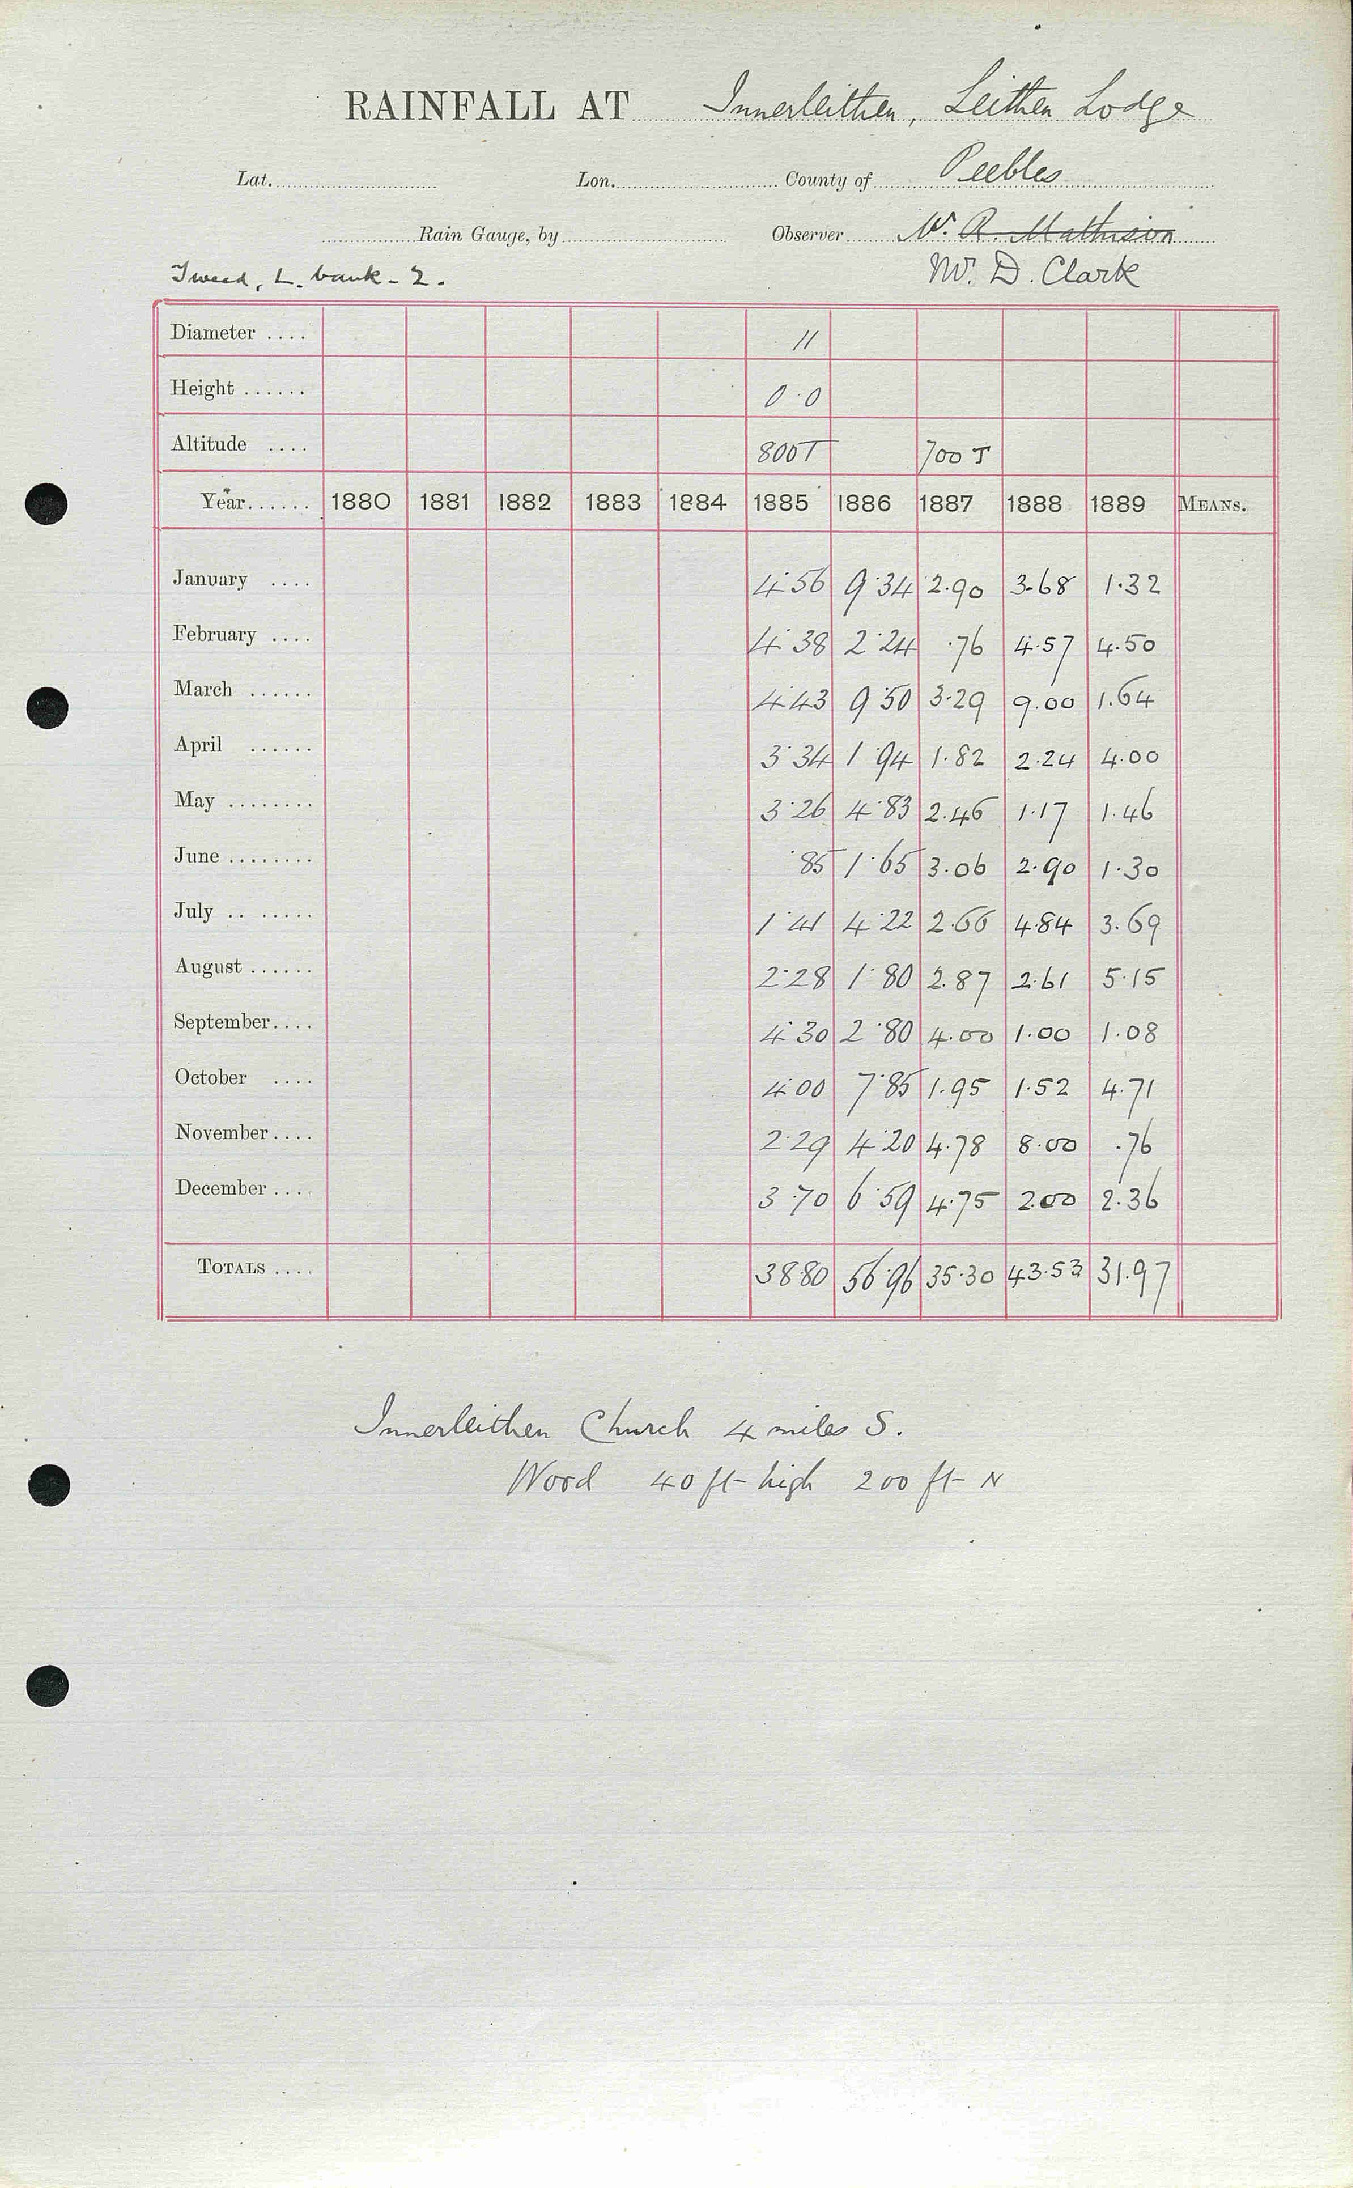 RAINFALL AT Innerleithen, Leithen Lodge
Lat. Lon. County of Peebles
Rain Gauge, by Observer W. R. Mathison
Tweed, L. bank - 2. W. D. Clark
Diameter .... 11
Height ...... 0.0
Altitude .... 800T 700T
Year...... 1880 1881 1882 1883 1884 1885 1886 1887 1888 1889 MEANS.
January .... 4.56 9.34 2.90 3.68 1.32
February .... 4.38 2.24 .76 4.57 4.50
March ...... 4.43 9.50 3.29 9.00 1.64
April ...... 3.34 1.94 1.82 2.24 4.00
May ........ 3.26 4.83 2.46 1.17 1.46
June ........ .85 1.65 3.06 2.90 1.30
July .. ..... 1.41 4.22 2.66 4.84 3.69
August ...... 2.28 1.80 2.87 2.61 5.15
September.... 4.30 2.80 4.00 1.00 1.08
October .... 4.00 7.85 1.95 1.52 4.71
November.... 2.29 4.20 4.78 8.00 .76
December.... 3.70 6.59 4.75 2.00 2.36
TOTALS .... 38.80 56.96 35.30 43.53 31.97
Innerleithen Church 4 miles S.
Wood 40 ft high 200 ft N